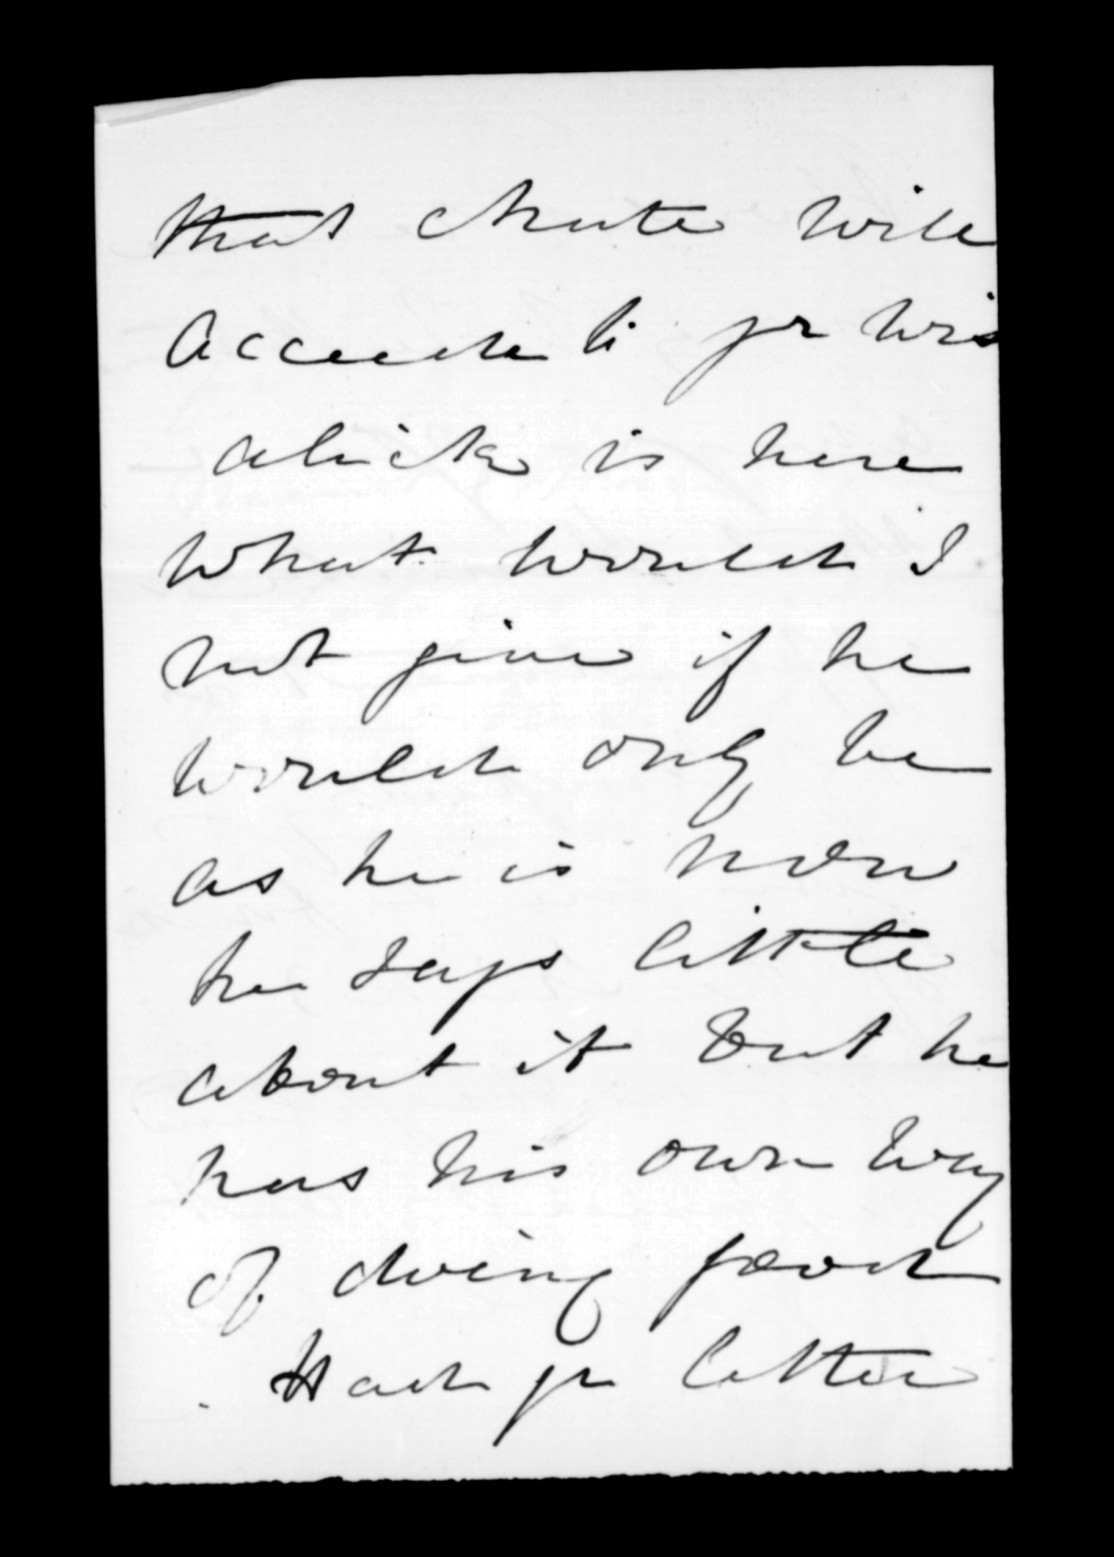 that Chute will
accede to yr wis
Alick is here
what would I
not give if he
would only be
as he is now
he says little
about it but he
has his own way
of doing good
Had yr letter